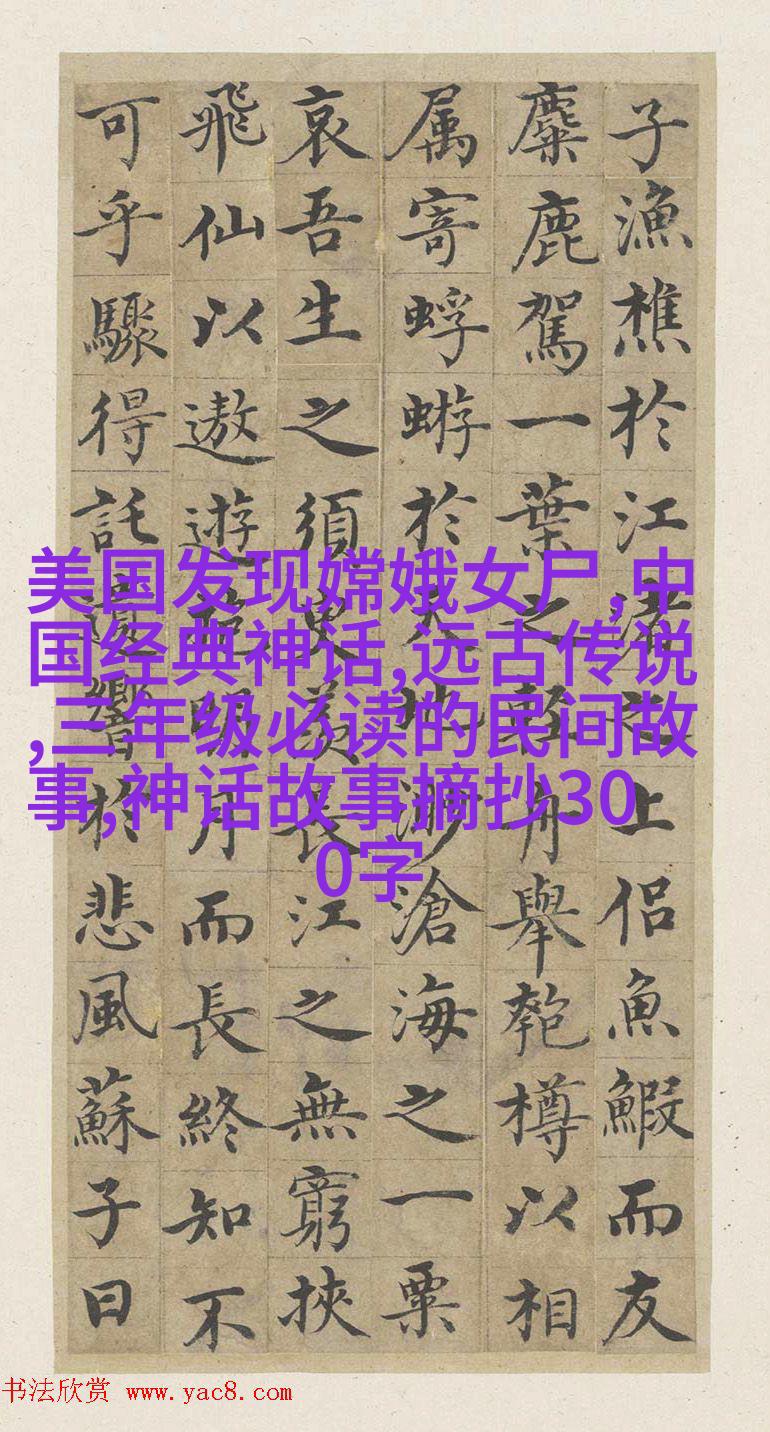 子漁樵於江渚之上侣魚鰕而友
麋鹿駕一葉之輕舟舉匏樽以相
属寄蜉蝣於天地渺滄海之一粟
哀吾生之須臾羨長江之無窮挾
飛仙以遨遊抱明月而長終知不
可乎驟得託遺響於悲風蘇子曰
美国发现嫦娥女尸,中
国经典神话,远古传说
,三年级必读的民间故
事,神话故事摘抄30
0字
书法欣赏 www.yac8.com